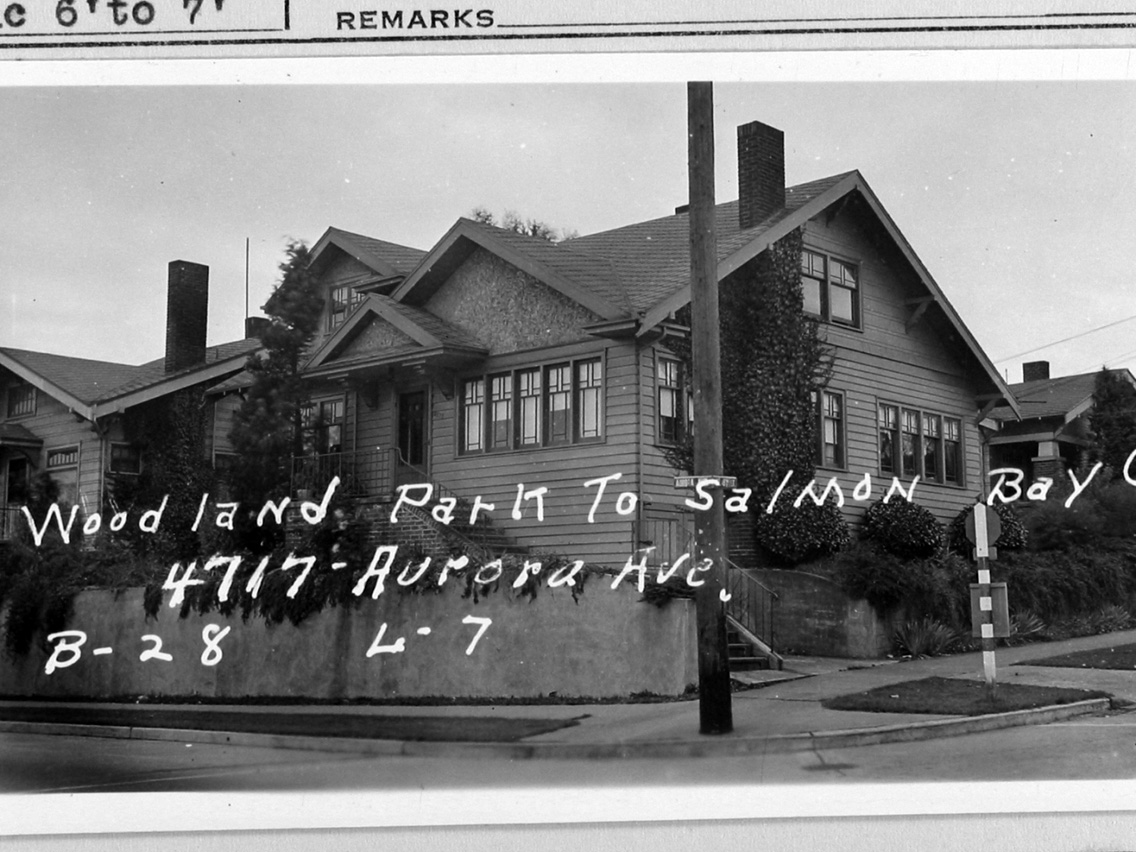 6' to 7'
REMARKS
Woodland Park To Salmon Bay
4717- Aurora Ave.
B-28 L-7